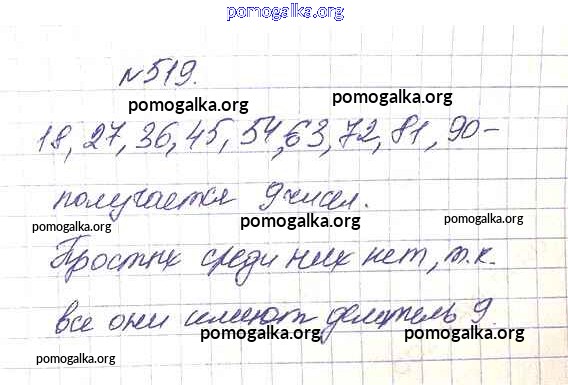 pomogalka.org
№519.
pomogalka.org
18, 27, 36, 45, 54, 63, 72, 81, 90 –
pomogalka.org pomogalka.org
получается 9 чисел.
pomogalka.org pomogalka.org
Простых среди них нет, т.к.
pomogalka.org
все они имеют делитель 9.
pomogalka.org pomogalka.org
pomogalka.org pomogalka.org